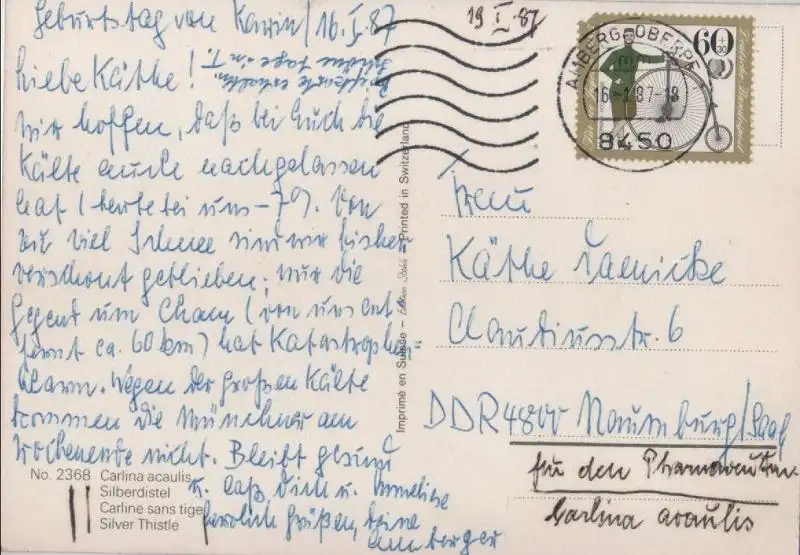 Geburtstag von Karin / 16.I.87
19 I. 87
Liebe Käthe!
wir hoffen, daß bei Euch die
Kälte auch nachgelassen
hat (heute bei uns -7°). Von
zu viel Schnee sind wir bisher
verschont geblieben, nur die
Gegend um Cham (von uns ent
fernt ca. 60 km) hat Katastrophen=
alarm. Wegen der großen Kälte
kommen die Münchner am
Wochenende nicht. Bleibt gesund
u. laß Dich u. Annelise
herzlich grüßen, Deine
Amberger
No. 2368 Carlina acaulis
Silberdistel
Carline sans tige
Silver Thistle
Imprimé en Suisse – Printed in Switzerland
AMBERG, OBERPF
16.-1.87-18
8450
60+30
Frau
Käthe Jaenicke
Claudiusstr. 6
DDR 4800 Naumburg/Saal
für den
Carlina acaulis